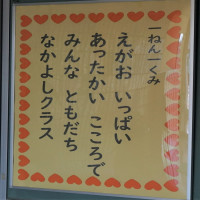 一ねん一くみ
えがお いっぱい
あったかい こころで
みんな ともだち
なかよしクラス